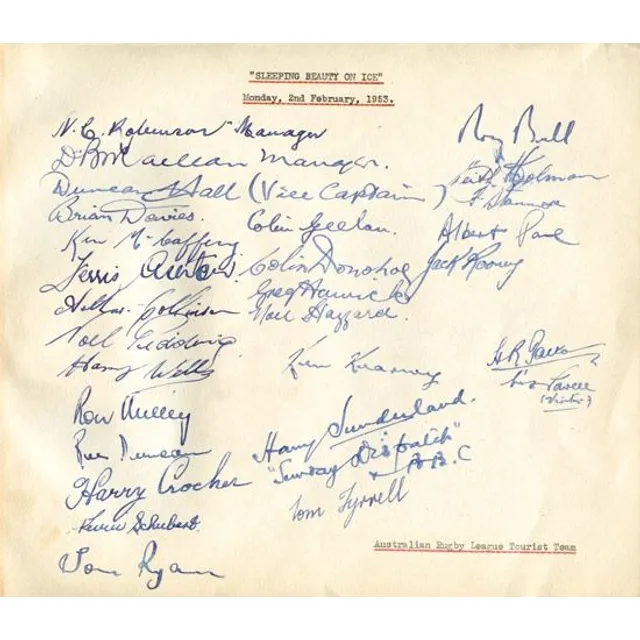 "SLEEPING BEAUTY ON ICE"
Monday, 2nd February, 1953.
N. G. Robinson Manager
D B McLellan Manager.
Duncan Hall (Vice Captain)
Brian Davies.
Colin Geelan.
Ken McCaffery
Ferris Ashton
Colin Donohoe
Arthur Collinson
Greg Hawick
Noel Hazzard.
Noel Pidding.
Harry Wells
Ken Kearney
Ron Willey
R Duncan
Harry Crocker
Kevin Schubert.
Tom Ryan
Harry Sunderland.
"Sunday Dispatch"
+ B.B.C
Tom Tyrrell
Roy Bull
Keith Holman
F. Stanmore
Albert Paul
Jack Rooney
(Visitor)
Australian Rugby League Tourist Team